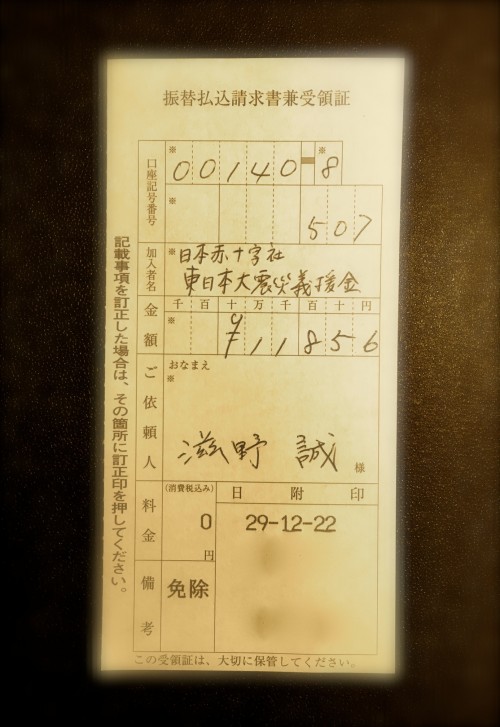 振替払込請求書兼受領証
口座記号番号
※ 00140-8 ※
※ 507
加入者名
※ 日本赤十字社
東日本大震災義援金
金額
千 百 十 万 千 百 十 円
※ ¥11856
ご依頼人
おなまえ
※
滋野 誠 様
料金
(消費税込み)
0
円
日 附 印
29-12-22
備考
免除
記載事項を訂正した場合は、その箇所に訂正印を押してください。
この受領証は、大切に保管してください。